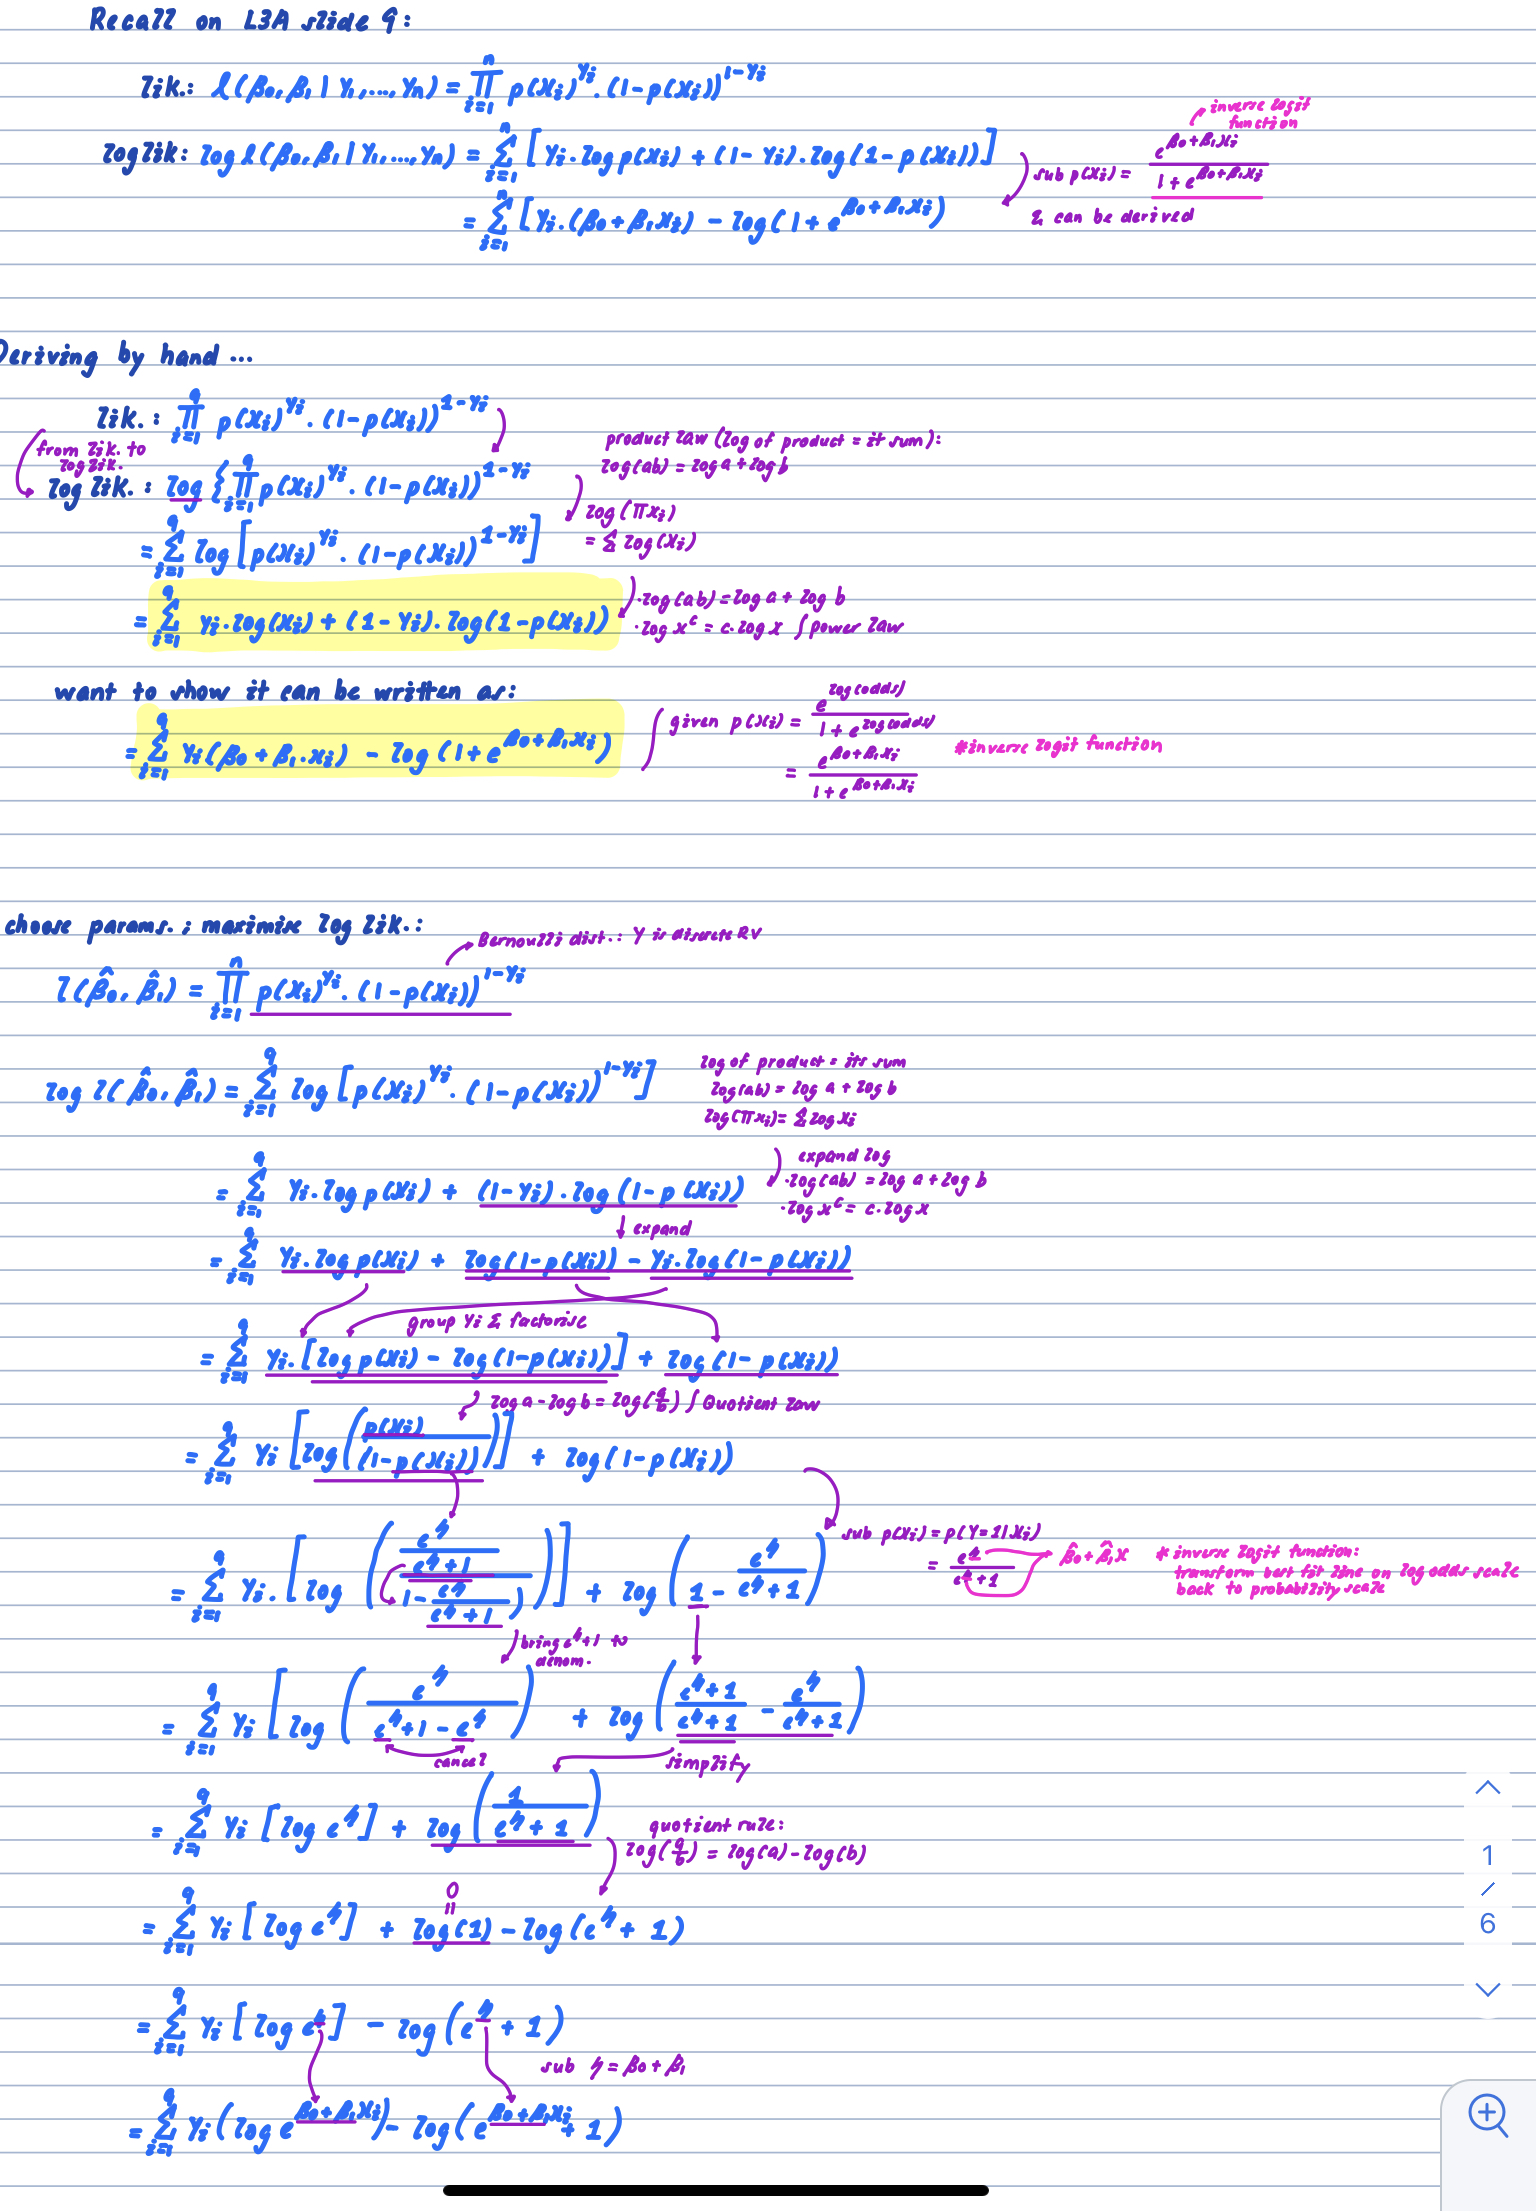 Recall on L3A slide 9:
lik.: ℓ(β₀, β₁ | Y₁,..., Yₙ) = ∏ᵢ₌₁ⁿ p(xᵢ)^Yᵢ . (1 - p(xᵢ))^(1-Yᵢ)
inverse logit
function
loglik: log ℓ(β₀, β₁ | Y₁,..., Yₙ) = Σᵢ₌₁ⁿ [Yᵢ. log p(xᵢ) + (1 - Yᵢ). log(1 - p(xᵢ))]
sub p(xᵢ) = e^(β₀+β₁xᵢ) / (1 + e^(β₀+β₁xᵢ))
& can be derived
= Σᵢ₌₁ⁿ [Yᵢ.(β₀ + β₁xᵢ) - log(1 + e^(β₀+β₁xᵢ))
Deriving by hand ...
lik. : ∏ᵢ₌₁⁹ p(xᵢ)^Yᵢ . (1 - p(xᵢ))^(1-Yᵢ)
from lik. to
log lik.
product law (log of product = it sum):
log(ab) = log a + log b
log lik. : log {∏ᵢ₌₁⁹ p(xᵢ)^Yᵢ . (1 - p(xᵢ))^(1-Yᵢ)
log(∏xᵢ)
= Σ log(xᵢ)
= Σᵢ₌₁⁹ log [p(xᵢ)^Yᵢ . (1 - p(xᵢ))^(1-Yᵢ)]
= Σᵢ₌₁⁹ Yᵢ. log(xᵢ) + (1 - Yᵢ). log(1 - p(xᵢ))
·log(ab) = log a + log b
·log x^c = c. log x ∫ power law
want to show it can be written as:
= Σᵢ₌₁⁹ Yᵢ(β₀ + β₁.xᵢ) - log(1 + e^(β₀+β₁xᵢ))
given p(xᵢ) = e^(log(odds)) / (1 + e^(log(odds)))
= e^(β₀+β₁xᵢ) / (1 + e^(β₀+β₁xᵢ))
*inverse logit function
choose params. ; maximise log lik. :
Bernoulli dist.: Y is discrete RV
l(β̂₀, β̂₁) = ∏ᵢ₌₁ⁿ p(xᵢ)^Yᵢ . (1 - p(xᵢ))^(1-Yᵢ)
log l(β̂₀, β̂₁) = Σᵢ₌₁⁹ log [p(xᵢ)^Yᵢ . (1 - p(xᵢ))^(1-Yᵢ)]
log of product = its sum
log(ab) = log a + log b
log(∏xᵢ) = Σ log xᵢ
= Σᵢ₌₁⁹ Yᵢ. log p(xᵢ) + (1 - Yᵢ). log(1 - p(xᵢ))
expand log
·log(ab) = log a + log b
·log x^c = c. log x
expand
= Σᵢ₌₁⁹ Yᵢ. log p(xᵢ) + log(1 - p(xᵢ)) - Yᵢ. log(1 - p(xᵢ))
group Yᵢ & factorise
= Σᵢ₌₁⁹ Yᵢ. [log p(xᵢ) - log(1 - p(xᵢ))] + log(1 - p(xᵢ))
log a - log b = log(a/b) ∫ Quotient law
= Σᵢ₌₁⁹ Yᵢ [log(p(xᵢ) / (1 - p(xᵢ)))] + log(1 - p(xᵢ))
sub p(xᵢ) = p(Y=1|xᵢ)
= e^η / (e^η + 1)
β̂₀ + β̂₁x
* inverse logit function:
transform best fit line on log odds scale
back to probability scale
= Σᵢ₌₁⁹ Yᵢ. [log((e^η / (e^η + 1)) / (1 - e^η / (e^η + 1)))] + log(1 - e^η / (e^η + 1))
bring e^η+1 to
denom.
= Σᵢ₌₁⁹ Yᵢ [log(e^η / (e^η + 1 - e^η)) + log((e^η + 1)/(e^η + 1) - e^η/(e^η + 1))
cancel
simplify
= Σᵢ₌₁⁹ Yᵢ [log e^η] + log(1 / (e^η + 1))
quotient rule:
log(a/b) = log(a) - log(b)
0
=
= Σᵢ₌₁⁹ Yᵢ [log e^η] + log(1) - log(e^η + 1)
= Σᵢ₌₁⁹ Yᵢ [log e^η] - log(e^η + 1)
sub η = β₀ + β₁
= Σᵢ₌₁⁹ Yᵢ(log e^(β₀+β₁xᵢ)) - log(e^(β₀+β₁xᵢ) + 1)
1
/
6